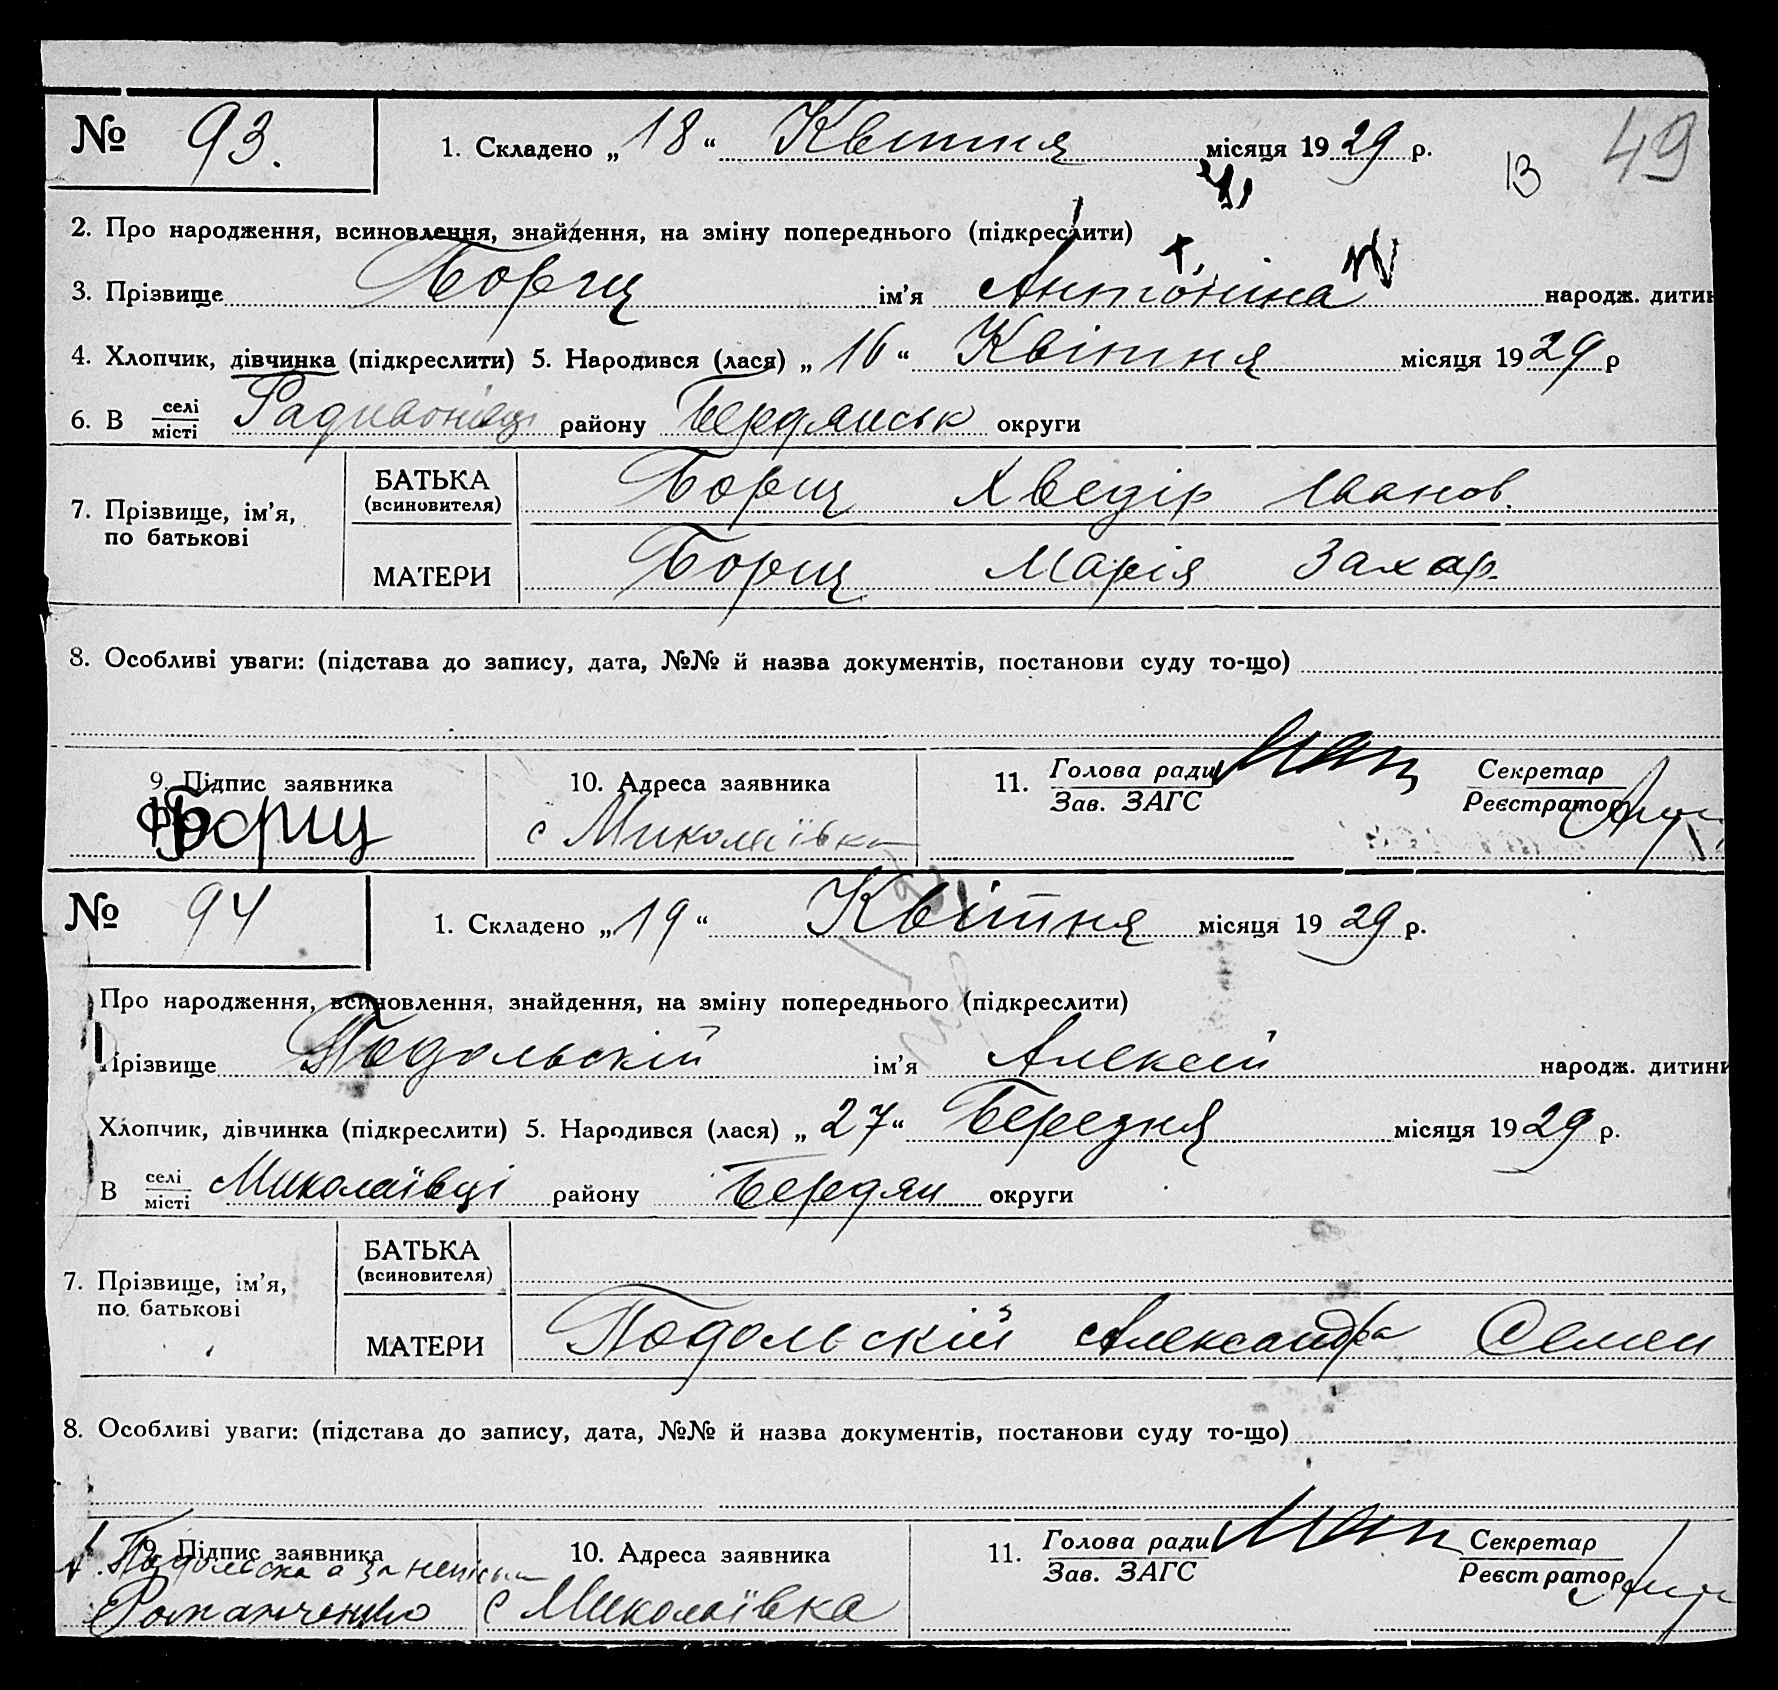 № 93. 1. Складено „18“ Квітня місяця 1929 р. 13 49
2. Про народження, всиновлення, знайдення, на зміну попереднього (підкреслити)
3. Прізвище Борщ ім’я Антоніна народж. дитин
4. Хлопчик, дівчинка (підкреслити) 5. Народився (лася) „16“ Квітня місяця 1929 р
6. В селі місті району Бердянськ округи
7. Прізвище, ім’я, по батькові
БАТЬКА (всиновителя) Борщ Хведір Іванов.
МАТЕРИ Борщ Марія Захар.
8. Особливі уваги: (підстава до запису, дата, №№ й назва документів, постанови суду то-що)
9. Підпис заявника 10. Адреса заявника 11. Голова ради Секретар
Зав. ЗАГС Реєстратор
Борщ с Миколаївка
№ 94 1. Складено „19“ Квітня місяця 1929 р.
Про народження, всиновлення, знайдення, на зміну попереднього (підкреслити)
Прізвище Подольскій ім’я Алексей народж. дитини
Хлопчик, дівчинка (підкреслити) 5. Народився (лася) „27“ Березня місяця 1929 р.
В селі місті Миколаївці району Бердян округи
7. Прізвище, ім’я, по батькові
БАТЬКА (всиновителя)
МАТЕРИ Подольскій Александра Семен
8. Особливі уваги: (підстава до запису, дата, №№ й назва документів, постанови суду то-що)
9. Підпис заявника 10. Адреса заявника 11. Голова ради Секретар
Зав. ЗАГС Реєстратор
Подольска а за
Романченко с Миколаївка